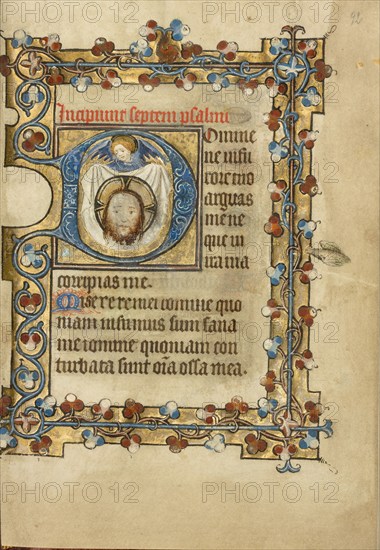 92
Incipiunt septem psalmi
Domine
ne in fu
rore tuo
arguas
me ne
que in
ira tua
corripias me.
Misere re mei domine quo
niam infirmus sum sana
me domine quoniam con
turbata sunt o͞ia ossa mea.
PHOTO 12